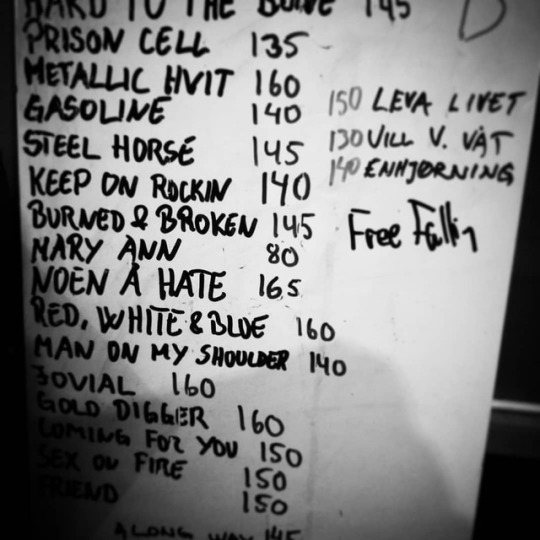 HARD TO THE BONE 145
PRISON CELL 135
METALLIC HVIT 160
GASOLINE 140
STEEL HORSE 145
KEEP ON ROCKIN 140
BURNED & BROKEN 145
MARY ANN 80
NOEN Å HATE 165
RED, WHITE & BLUE 160
MAN ON MY SHOULDER 140
JOVIAL 160
GOLD DIGGER 160
COMING FOR YOU 150
SEX ON FIRE 150
FRIEND 150
ALONG WAY 145
150 LEVA LIVET
130 VILL V. VÅT
140 ENHJØRNING
Free Fallin